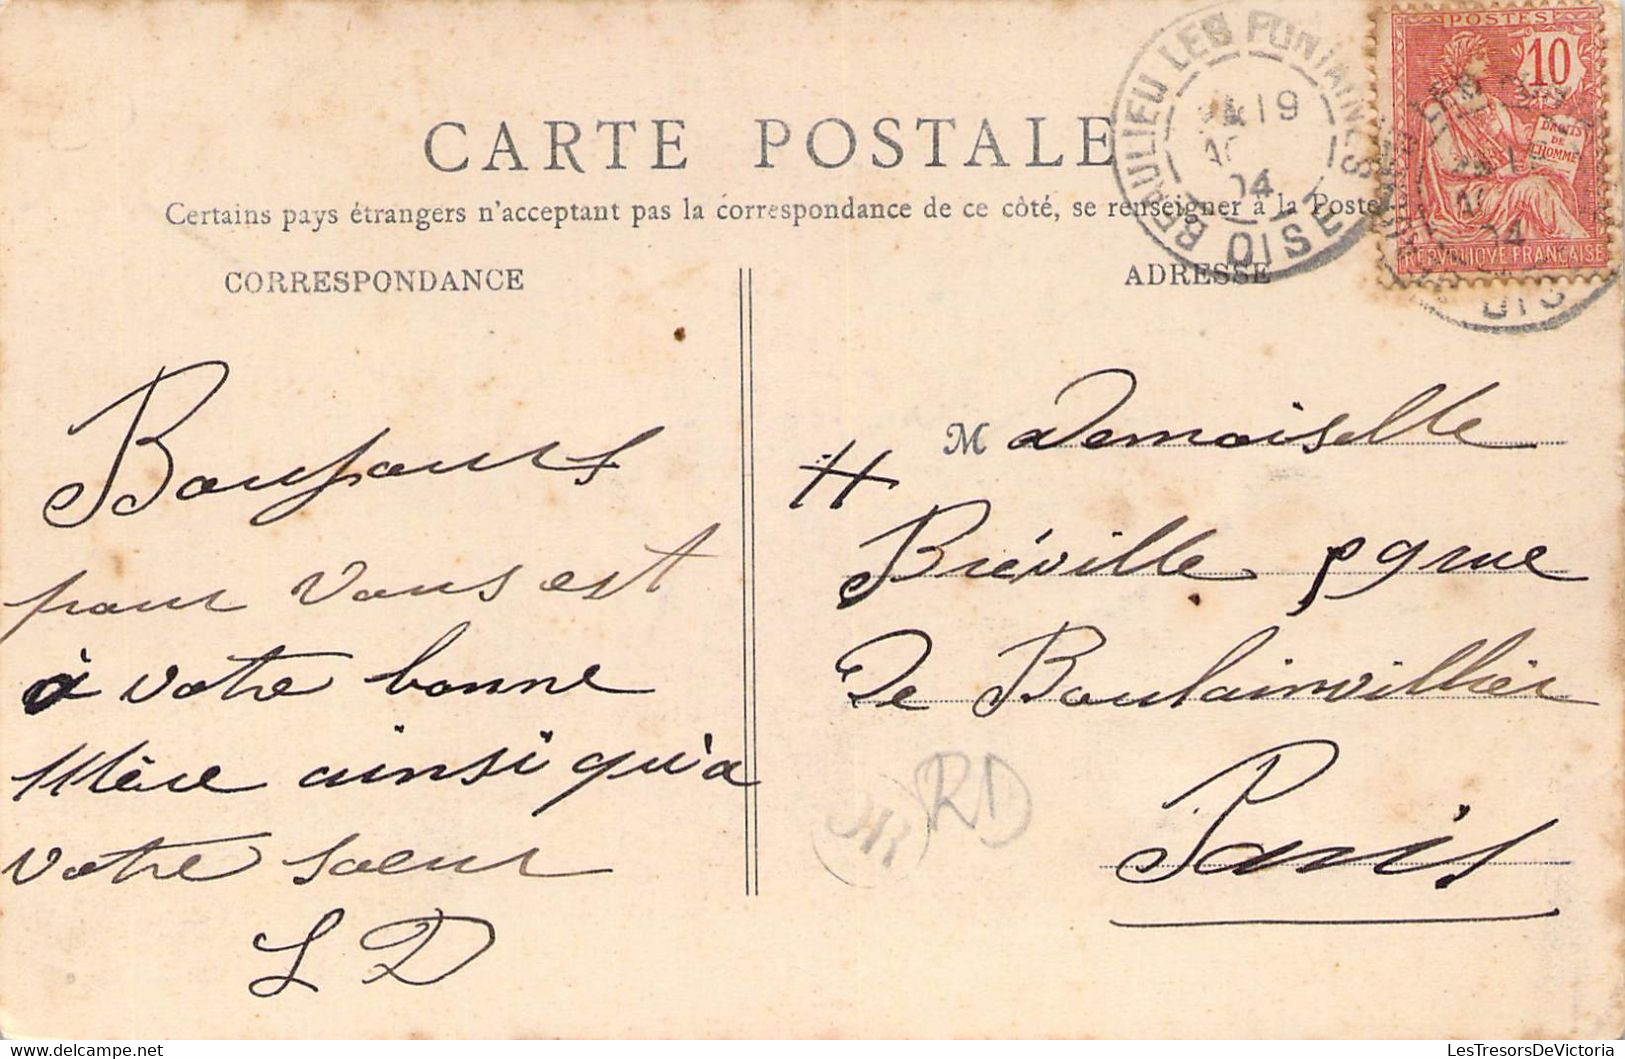 CARTE POSTALE
Certains pays étrangers n'acceptent pas la correspondance de ce côté, se renseigner à la Poste
CORRESPONDANCE
ADRESSE
BEAULIEU LES FONTAINES
19
04
OISE
POSTES
10
DROITS
DE
L'HOMME
REPVBLIQVE FRANÇAISE
OIS
Bonjours
pour vous est
à votre bonne
Mère ainsi qu'a
votre soeur
L D
Mademoiselle
Bréville 59 rue
De Boulainvillier
Paris
RD
LesTresorsDeVictoria